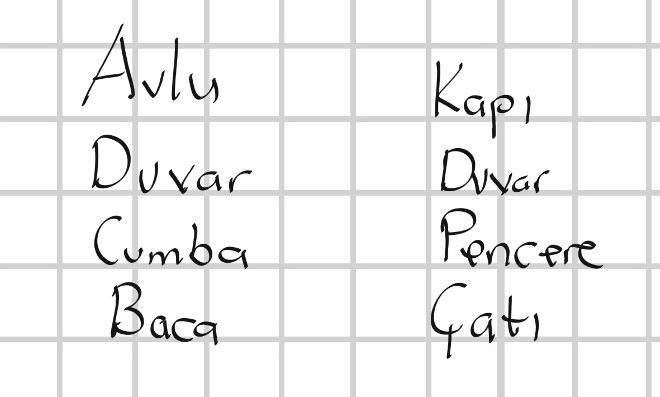 Avlu
Duvar
Cumba
Baca
Kapı
Duvar
Pencere
Çatı